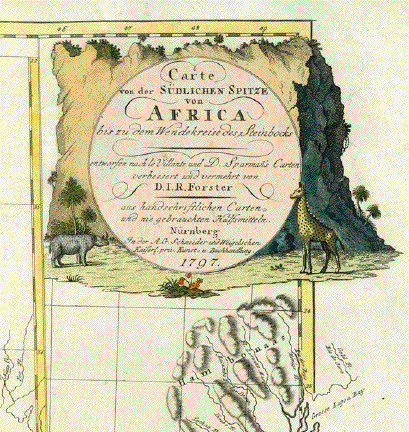 46 47 48 49
Carte
von der SÜDLICHEN SPITZE
von
AFRICA
bis zu dem Wendekreise des Steinbocks
entworfen nach le Vaillants und D. Sparmañs Carten
verbessert und vermehrt von
D. I. R. Forster
aus handschriftlichen Carten,
und nie gebrauchten Hülfsmitteln.
Nürnberg
In der A. G. Schneider und Weigelschen
Kaiserl. priv. Kunst- u. Buchhandlung
1797.
25
Grosse Lagoa Bay